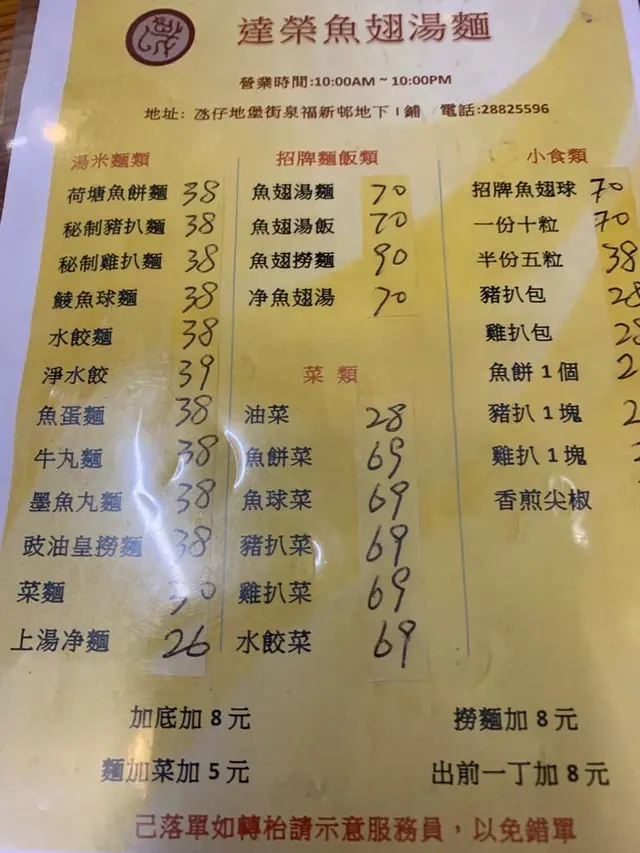 達榮魚翅湯麵
營業時間:10:00AM ~ 10:00PM
地址: 氹仔地堡街泉福新邨地下 I 鋪 電話:28825596
湯米麵類
荷塘魚餅麵 38
秘制豬扒麵 38
秘制雞扒麵 38
鯪魚球麵 38
水餃麵 38
淨水餃 39
魚蛋麵 38
牛丸麵 38
墨魚丸麵 38
豉油皇撈麵 38
菜麵 30
上湯净麵 26
招牌麵飯類
魚翅湯麵 70
魚翅湯飯 70
魚翅撈麵 90
净魚翅湯 70
菜 類
油菜 28
魚餅菜 69
魚球菜 69
豬扒菜 69
雞扒菜 69
水餃菜 69
小食類
招牌魚翅球 70
一份十粒 70
半份五粒 38
豬扒包 28
雞扒包 28
魚餅 1 個
豬扒 1 塊
雞扒 1 塊
香煎尖椒
加底加 8 元
麵加菜加 5 元
撈麵加 8 元
出前一丁加 8 元
己落單如轉枱請示意服務員，以免錯單